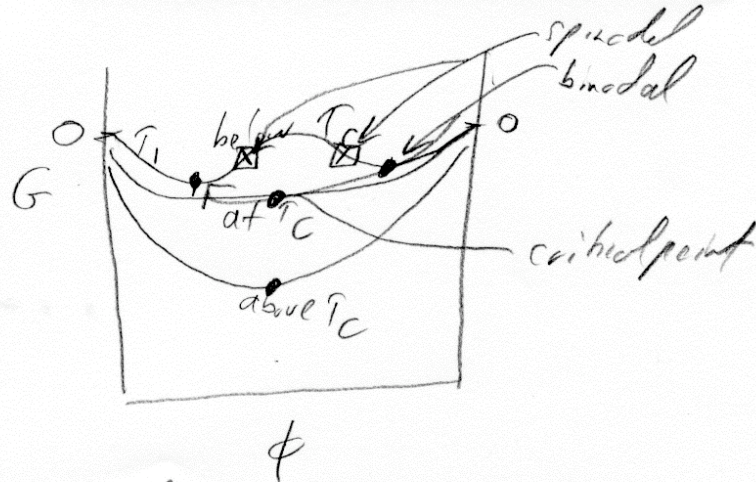 spinodal
binodal
O
T₁
below T
C
O
G
at T_C
critical point
above T_C
ϕ